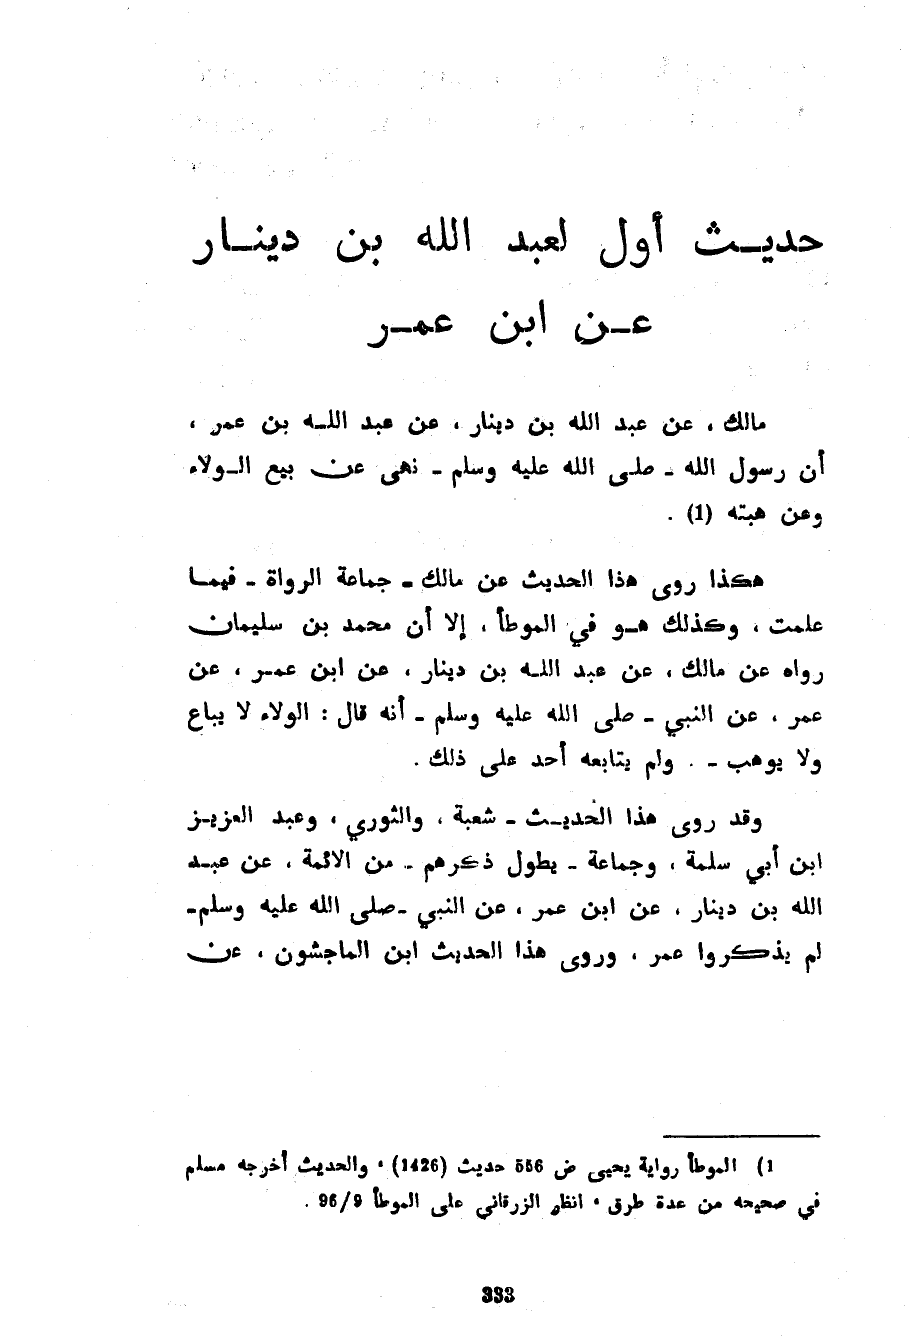 حديث أول لعبد الله بن دينار
عن ابن عمر
مالك ، عن عبد الله بن دينار ، عن عبد الله بن عمر ،
أن رسول الله - صلى الله عليه وسلم - نهى عن بيع الولاء
وعن هبته (1) .
هكذا روى هذا الحديث عن مالك - جماعة الرواة - فيما
علمت ، وكذلك هو في الموطأ ، إلا أن محمد بن سليمان
رواه عن مالك ، عن عبد الله بن دينار ، عن ابن عمر ، عن
عمر ، عن النبي - صلى الله عليه وسلم - أنه قال : الولاء لا يباع
ولا يوهب - . ولم يتابعه أحد على ذلك .
وقد روى هذا الحديث - شعبة ، والثوري ، وعبد العزيز
ابن أبي سلمة ، وجماعة - يطول ذكرهم - من الائمة ، عن عبد
الله بن دينار ، عن ابن عمر ، عن النبي -صلى الله عليه وسلم-
لم يذكروا عمر ، وروى هذا الحديث ابن الماجشون ، عن
1) الموطأ رواية يحيى ص 556 حديث (1426) • والحديث أخرجه مسلم
في صحيحه من عدة طرق • انظر الزرقاني على الموطأ 96/9 .
333